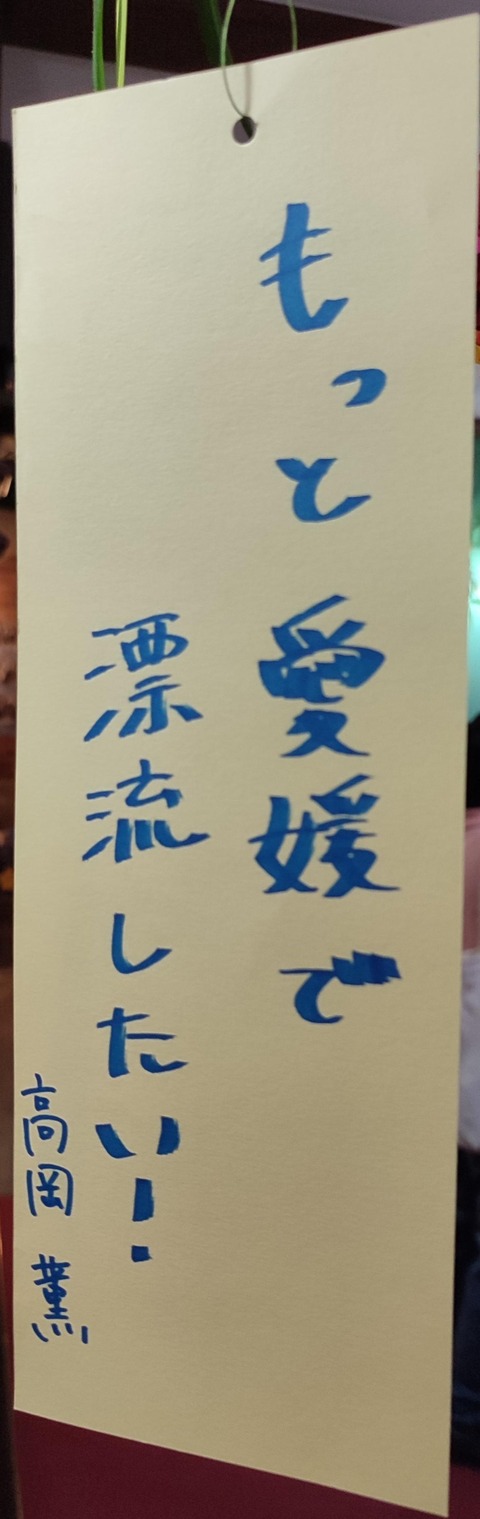 もっと愛媛で
漂流したい!
高岡薫